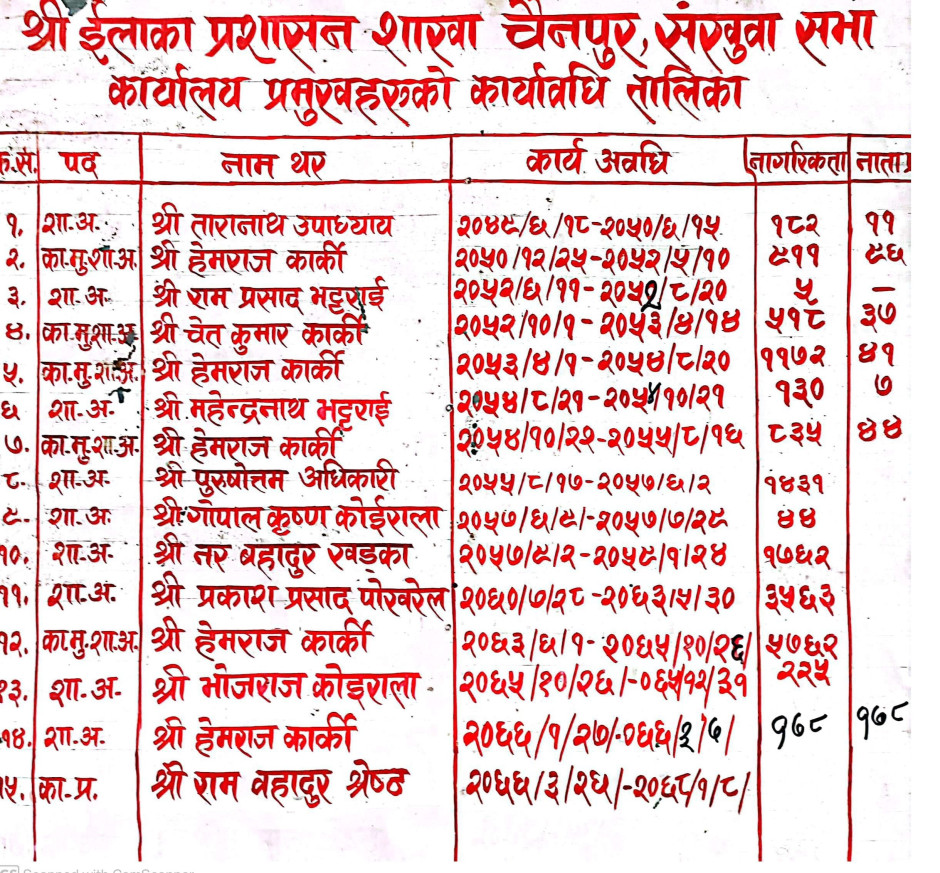 श्री ईलाका प्रशासन शाखा चैनपुर, संखुवा सभा
कार्यालय प्रमुखहरुको कार्यावधि तालिका
क्र.सं. पद नाम थर कार्य अवधि नागरिकता नाता
१. शा.अ. श्री तारानाथ उपाध्याय २०४९/६/१८-२०५०/६/१५ १८२ ११
२. का.मु.शा.अ. श्री हेमराज कार्की २०५०/१२/२५-२०५२/५/१० ९११ ९६
३. शा.अ. श्री राम प्रसाद भट्टराई २०५२/६/११-२०५२/८/२० ५ –
४. का.मु.शा.अ श्री चेत कुमार कार्की २०५२/१०/१-२०५३/४/१४ ५१८ ३७
५. का.मु.शा.अ. श्री हेमराज कार्की २०५३/४/१-२०५४/८/२० ११७२ ४१
६ शा.अ. श्री महेन्द्रनाथ भट्टराई २०५४/८/२१-२०५४/१०/२१ १३० ७
७. का.मु.शा.अ. श्री हेमराज कार्की २०५४/१०/२२-२०५५/८/१६ ८३५ ४४
८. शा.अ. श्री पुरुषोत्तम अधिकारी २०५५/८/१७-२०५७/६/२ १४३१
९. शा.अ. श्री गोपाल कृष्ण कोईराला २०५७/६/९/-२०५७/७/२९ ४४
१०. शा.अ. श्री नर बहादुर खड्का २०५७/९/२-२०५९/१/२४ १७६२
११. शा.अ. श्री प्रकाश प्रसाद पोखरेल २०६०/७/२८-२०६३/५/३० ३५६३
१२. का.मु.शा.अ. श्री हेमराज कार्की २०६३/६/१-२०६५/१०/२६/ ५७६२
१३. शा.अ. श्री भोजराज कोइराला २०६५/१०/२६/-०६५/१२/३१ २२५
१४. शा.अ. श्री हेमराज कार्की २०६६/१/२७/-०६६/३/७/ १६८ १६८
१५. का.प्र. श्री राम बहादुर श्रेष्ठ २०६६/३/२६/-२०६८/१/८/